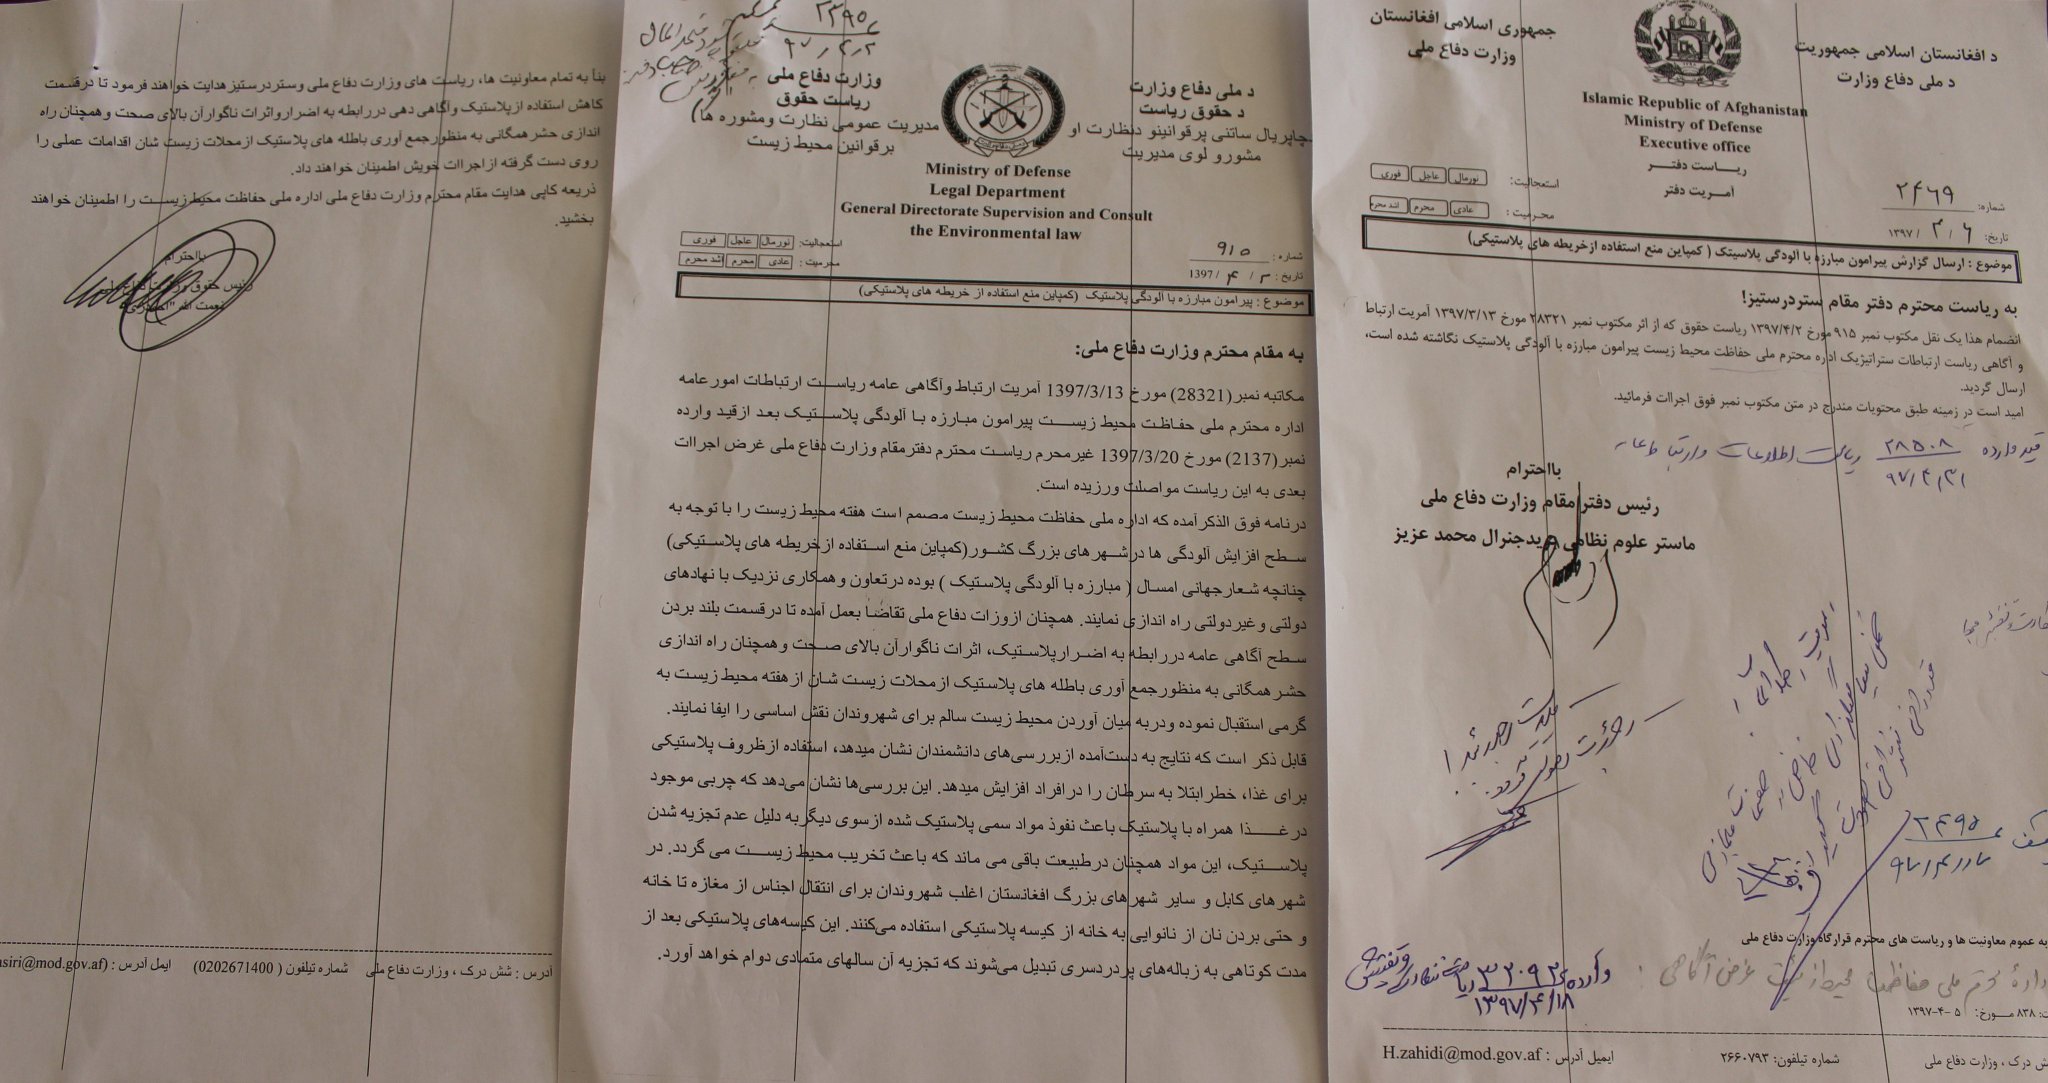 جمهوری اسلامی افغانستان
وزارت دفاع ملی
د افغانستان اسلامی جمهوریت
د ملی دفاع وزارت
Islamic Republic of Afghanistan
Ministry of Defense
Executive office
ریاست دفتر
آمریت دفتر
استعجالیت: نورمال عاجل فوری
محرمیت: عادی محرم اشد محرم
شماره: ۲۴۶۹
تاریخ: ۶ / ۴ / ۱۳۹۷
موضوع : ارسال گزارش پیرامون مبارزه با آلودگی پلاسیتک ( کمپاین منع استفاده ازخریطه های پلاستیکی)
به ریاست محترم دفتر مقام ستردرستیز!
انضمام هذا یک نقل مکتوب نمبر ۹۱۵ مورخ ۱۳۹۷/۴/۲ ریاست حقوق که از اثر مکتوب نمبر ۲۸۳۲۱ مورخ ۱۳۹۷/۳/۱۳ آمریت ارتباط
و آگاهی ریاست ارتباطات ستراتیژیک اداره محترم ملی حفاظت محیط زیست پیرامون مبارزه با آلودگی پلاستیک نگاشته شده است،
ارسال گردید.
امید است در زمینه طبق محتویات مندرج در متن مکتوب نمبر فوق اجراات فرمائید.
قید وارده ۲۸۵۰۸ ریاست اطلاعات وارتباط عامه
بااحترام
رئیس دفتر مقام وزارت دفاع ملی
ماستر علوم نظامی بریدجنرال محمد عزیز
به عموم معاونیت ها و ریاست های محترم قرارگاه وزارت دفاع ملی
محترم ملی حفاظت محیط زیست غرض آگاهی
وارده ۳۳۰۹۳
۱۳۹۷/۴/۱۸
۸۳۸ مورخ: ۵ -۴-۱۳۹۷
شش درک ، وزارت دفاع ملی
شماره تیلفون: ۲۶۶۰۷۹۳
ایمیل آدرس : H.zahidi@mod.gov.af
۲۳۹۵
۹۷/۴/۲
وزارت دفاع ملی
ریاست حقوق
مدیریت عمومی نظارت ومشوره ها)
برقوانین محیط زیست
د ملی دفاع وزارت
د حقوق ریاست
چاپریال ساتنی پرقوانینو دنظارت او
مشورو لوی مدیریت
Ministry of Defense
Legal Department
General Directorate Supervision and Consult
the Environmental law
استعجالیت: نورمال عاجل فوری
محرمیت : عادی محرم اشد محرم
شماره : ۹۱۵
تاریخ : ۲ / ۴ /1397
موضوع : پیرامون مبارزه با آلودگی پلاستیک (کمپاین منع استفاده از خریطه های پلاستیکی)
به مقام محترم وزارت دفاع ملی:
مکاتبه نمبر(28321) مورخ 1397/3/13 آمریت ارتباط وآگاهی عامه ریاست ارتباطات امورعامه
اداره محترم ملی حفاظت محیط زیست پیرامون مبارزه با آلودگی پلاستیک بعد ازقید وارده
نمبر(2137) مورخ 1397/3/20 غیرمحرم ریاست محترم دفترمقام وزارت دفاع ملی غرض اجراات
بعدی به این ریاست مواصلت ورزیده است.
درنامه فوق الذکرآمده که اداره ملی حفاظت محیط زیست مصمم است هفته محیط زیست را با توجه به
سطح افزایش آلودگی ها درشهرهای بزرگ کشور(کمپاین منع استفاده ازخریطه های پلاستیکی)
چنانچه شعارجهانی امسال ( مبارزه با آلودگی پلاستیک ) بوده درتعاون وهمکاری نزدیک با نهادهای
دولتی وغیردولتی راه اندازی نمایند. همچنان ازوزات دفاع ملی تقاضا بعمل آمده تا درقسمت بلند بردن
سطح آگاهی عامه دررابطه به اضرارپلاستیک، اثرات ناگوارآن بالای صحت وهمچنان راه اندازی
حشر همگانی به منظورجمع آوری باطله های پلاستیک ازمحلات زیست شان ازهفته محیط زیست به
گرمی استقبال نموده ودربه میان آوردن محیط زیست سالم برای شهروندان نقش اساسی را ایفا نمایند.
قابل ذکر است که نتایج به دست‌آمده ازبررسی‌های دانشمندان نشان میدهد، استفاده ازظروف پلاستیکی
برای غذا، خطرابتلا به سرطان را درافراد افزایش میدهد. این بررسی‌ها نشان می‌دهد که چربی موجود
در غذا همراه با پلاستیک باعث نفوذ مواد سمی پلاستیک شده ازسوی دیگربه دلیل عدم تجزیه شدن
پلاستیک، این مواد همچنان درطبیعت باقی می ماند که باعث تخریب محیط زیست می گردد. در
شهرهای کابل و سایر شهرهای بزرگ افغانستان اغلب شهروندان برای انتقال اجناس از مغازه تا خانه
و حتی بردن نان از نانوایی به خانه از کیسه پلاستیکی استفاده می‌کنند. این کیسه‌های پلاستیکی بعد از
مدت کوتاهی به زباله‌های پردردسری تبدیل می‌شوند که تجزیه آن سالهای متمادی دوام خواهد آورد.
بنأ به تمام معاونیت ها، ریاست های وزارت دفاع ملی وستردرستیزهدایت خواهند فرمود تا درقسمت
کاهش استفاده ازپلاستیک وآگاهی دهی دررابطه به اضرارواثرات ناگوارآن بالای صحت وهمچنان راه
اندازی حشرهمگانی به منظورجمع آوری باطله های پلاستیک ازمحلات زیست شان اقدامات عملی را
روی دست گرفته ازاجراات خویش اطمینان خواهند داد.
ذریعه کاپی هدایت مقام محترم وزارت دفاع ملی اداره ملی حفاظت محیط زیست را اطمینان خواهند
بخشید.
بااحترام
رئیس حقوق وزارت دفاع ملی
نعمت الله
آدرس : شش درک ، وزارت دفاع ملی شماره تیلفون ( 0202671400) ایمل آدرس : (asiri@mod.gov.af